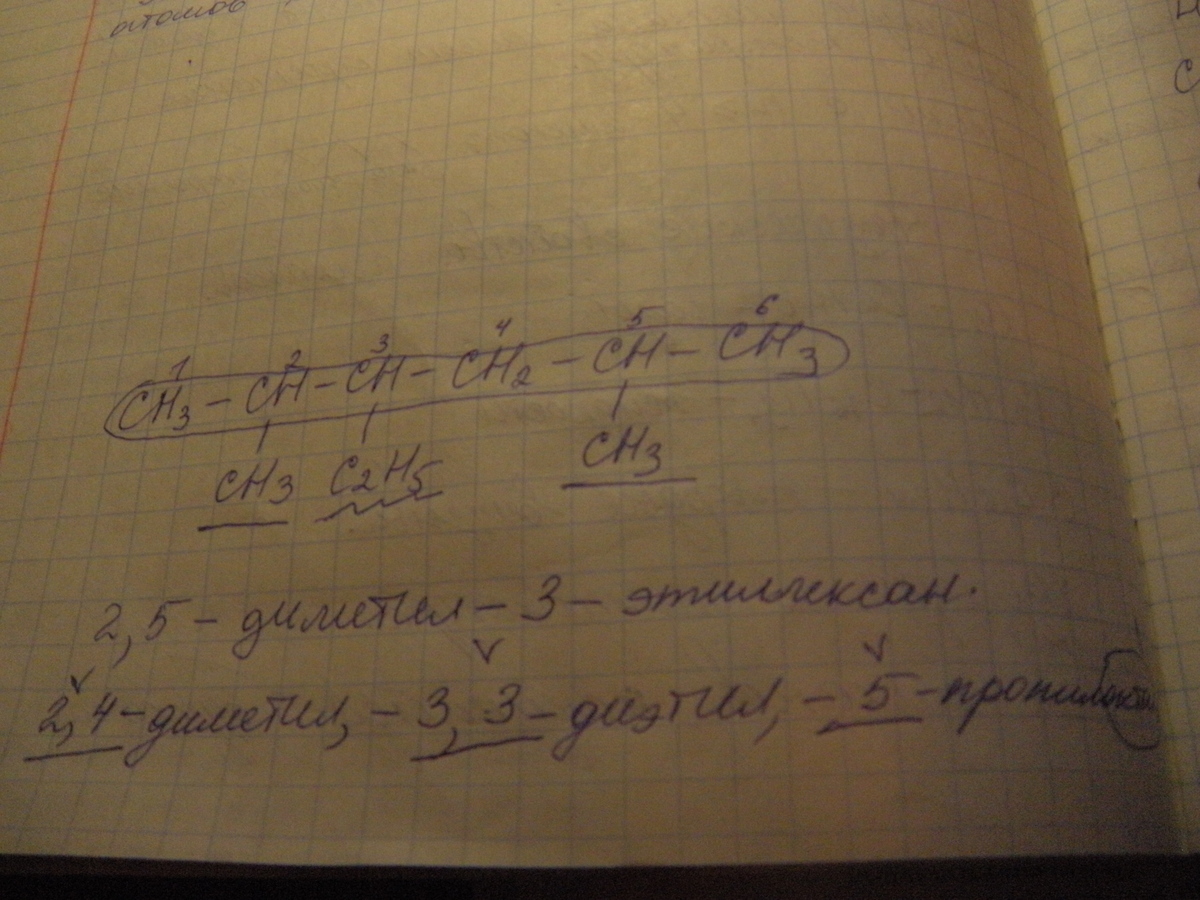 атомов
1 2 3 4 5 6
CH3 - CH - CH - CH2 - CH - CH3
CH3 C2H5 CH3
2,5 - диметил - 3 - этилгексан.
2,4 - диметил, - 3,3 - диэтил, - 5 - пропилоктан